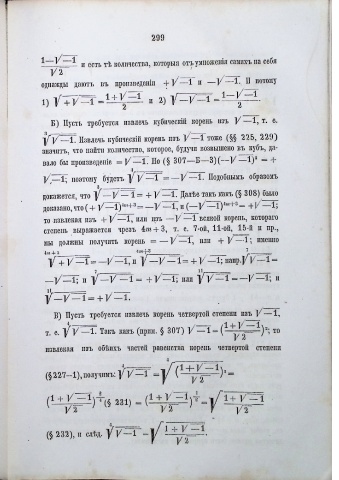 299
(1−√−1)/√2 и есть тѣ количества, которыя отъ умноженія самихъ на себя
однажды даютъ въ произведеніи +√−1 и −√−1. И потому
1) √(+√−1) = (1+√−1)/√2 и 2) √(−√−1) = (1−√−1)/√2.
Б) Пусть требуется извлечь кубическій корень изъ √−1, т. е.
∛(√−1). Извлечь кубическій корень изъ √−1 тоже (§§ 225, 229)
значитъ, что найти количество, которое, будучи возвышено въ кубъ, да-
вало бы произведеніе = √−1. Но (§ 307—Б—3)(−√−1)³ = +
√−1; поэтому будетъ ∛(√−1) = −√−1. Подобнымъ образомъ
докажется, что ∛(−√−1) = +√−1. Далѣе такъ какъ (§ 308) было
доказано, что (+√−1)⁴ᵐ⁺³ = −√−1, и (−√−1)⁴ᵐ⁺³ = +√−1;
то извлекая изъ +√−1, или изъ −√−1 всякой корень, котораго
степень выражается чрезъ 4m + 3, т. е. 7-ой, 11-ой, 15-й и пр.,
мы должны получить корень = −√−1, или +√−1; именно
⁴ᵐ⁺³√(+√−1) = −√−1, и ⁴ᵐ⁺³√(−√−1) = +√−1; напр. ⁷√(√−1) =
−√−1; и ⁷√(−√−1) = +√−1; или ¹¹√(√−1) = −√−1; и
¹¹√(−√−1) = +√−1.
В) Пусть требуется извлечь корень четвертой степени изъ √−1,
т. е. ⁴√(√−1). Такъ какъ (прим. § 307) √−1 = ((1+√−1)/√2)²; то
извлекая изъ обѣихъ частей равенства корень четвертой степени
(§ 227—1), получимъ: ⁴√(√−1) = ⁴√((1+√−1)/√2)² =
((1+√−1)/√2)^(2/4) (§ 231) = ((1+√−1)/√2)^(1/2) = √((1+√−1)/√2)
(§ 232), и слѣд. ⁴√(√−1) = √((1+√−1)/√2).